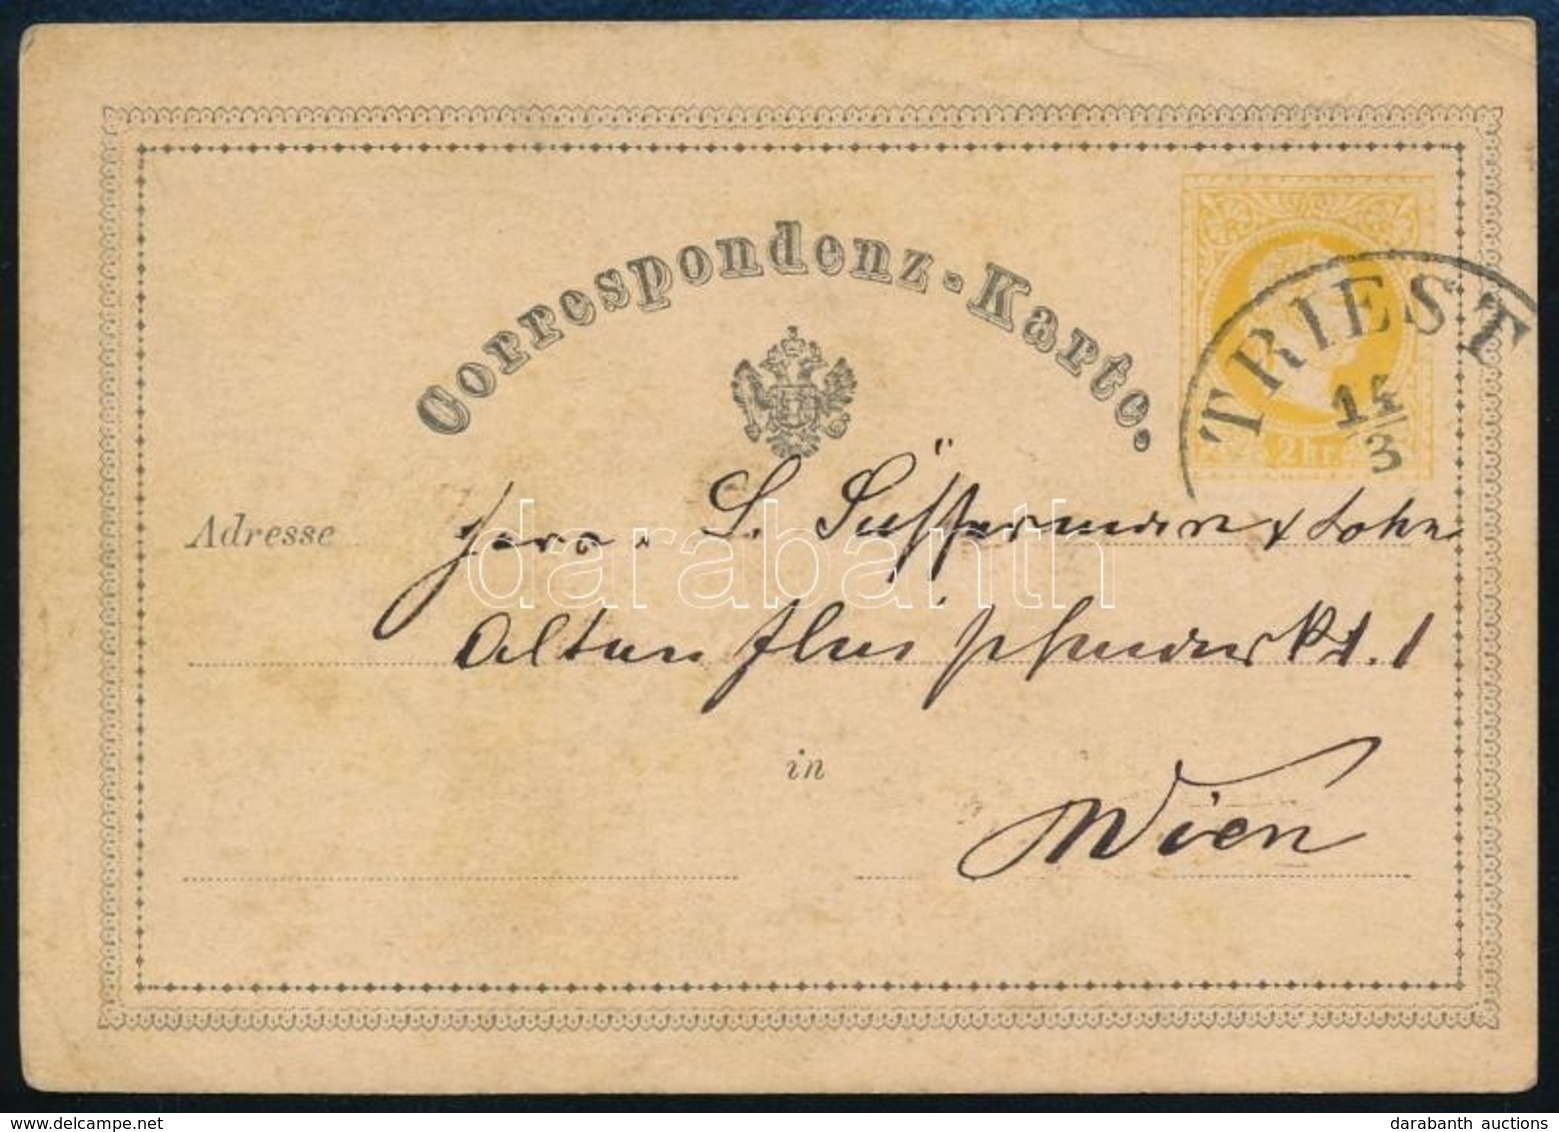 Correspondenz-Karte.
TRIEST
15/3
2 kr.
Adresse
Herrn. S. Süssermann & Sohn
Alten Fleischmarkt. 1
in
Wien
darabanth
delcampe.net
darabanth auctions